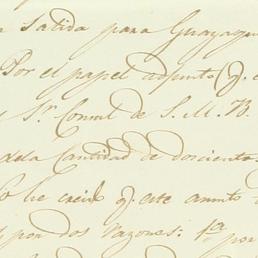 Salida para Guayaqu
Por el papel adjunto (q.e
Sr. Consul de S. M. B.
de la Cantidad de doscientos
he creido q.e este asunto
por dos razones: 1a
por